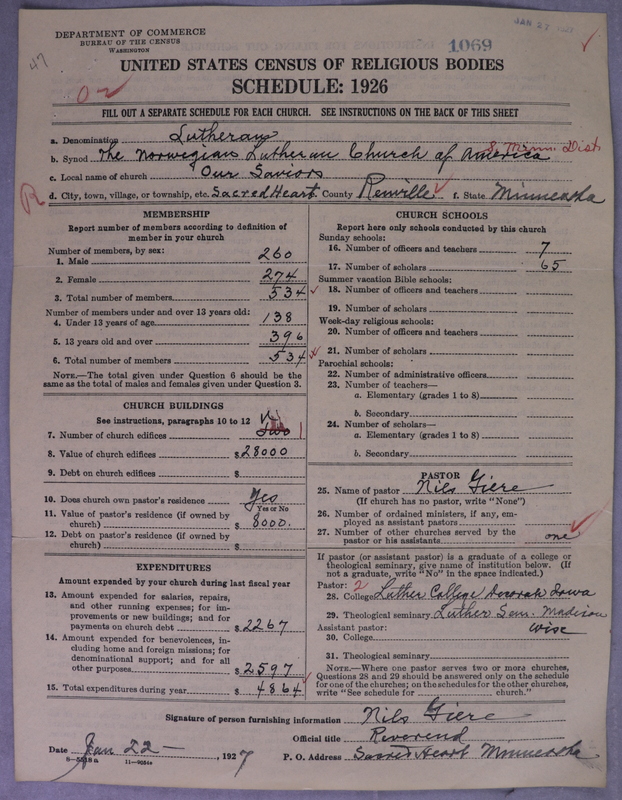 DEPARTMENT OF COMMERCE
BUREAU OF THE CENSUS
WASHINGTON
JAN 27 1927
1069
47
UNITED STATES CENSUS OF RELIGIOUS BODIES
SCHEDULE: 1926
FILL OUT A SEPARATE SCHEDULE FOR EACH CHURCH. SEE INSTRUCTIONS ON THE BACK OF THIS SHEET
a. Denomination Lutheran
b. Synod The Norwegian Lutheran Church of America S. Minn. Dist.
c. Local name of church Our Saviors
d. City, town, village, or township, etc. Sacred Heart. County Renville f. State Minnesota
R
MEMBERSHIP
Report number of members according to definition of
member in your church
Number of members, by sex:
1. Male 260
2. Female 274
3. Total number of members 534
Number of members under and over 13 years old:
4. Under 13 years of age 138
5. 13 years old and over 396
6. Total number of members 534
NOTE.—The total given under Question 6 should be the
same as the total of males and females given under Question 3.
CHURCH BUILDINGS
See instructions, paragraphs 10 to 12
7. Number of church edifices Two 1
8. Value of church edifices $ 28000
9. Debt on church edifices $
10. Does church own pastor's residence Yes
Yes or No
11. Value of pastor's residence (if owned by
church) $ 8000.
12. Debt on pastor's residence (if owned by
church) $
EXPENDITURES
Amount expended by your church during last fiscal year
13. Amount expended for salaries, repairs,
and other running expenses; for im-
provements or new buildings; and for
payments on church debt $ 2267
14. Amount expended for benevolences, in-
cluding home and foreign missions; for
denominational support; and for all
other purposes $ 2597
15. Total expenditures during year $ 4864
CHURCH SCHOOLS
Report here only schools conducted by this church
Sunday schools:
16. Number of officers and teachers 7
17. Number of scholars 65
Summer vacation Bible schools:
18. Number of officers and teachers
19. Number of scholars
Week-day religious schools:
20. Number of officers and teachers
21. Number of scholars
Parochial schools:
22. Number of administrative officers
23. Number of teachers—
a. Elementary (grades 1 to 8)
b. Secondary
24. Number of scholars—
a. Elementary (grades 1 to 8)
b. Secondary
PASTOR
25. Name of pastor Nils Giere
(If church has no pastor, write "None")
26. Number of ordained ministers, if any, em-
ployed as assistant pastors
27. Number of other churches served by the
pastor or his assistants one
If pastor (or assistant pastor) is a graduate of a college or
theological seminary, give name of institution below. (If
not a graduate, write "No" in the space indicated.)
Pastor: 2
28. College Luther College Decorah Iowa
29. Theological seminary Luther Sem. Madison
Assistant pastor: Wisc
30. College
31. Theological seminary
NOTE.—Where one pastor serves two or more churches,
Questions 28 and 29 should be answered only on the schedule
for one of the churches; on the schedules for the other churches,
write "See schedule for church."
Signature of person furnishing information Nils Giere
Official title Reverend
Date Jan 22 —, 1927 P. O. Address Sacred Heart Minnesota
8—5518a 11—9054e